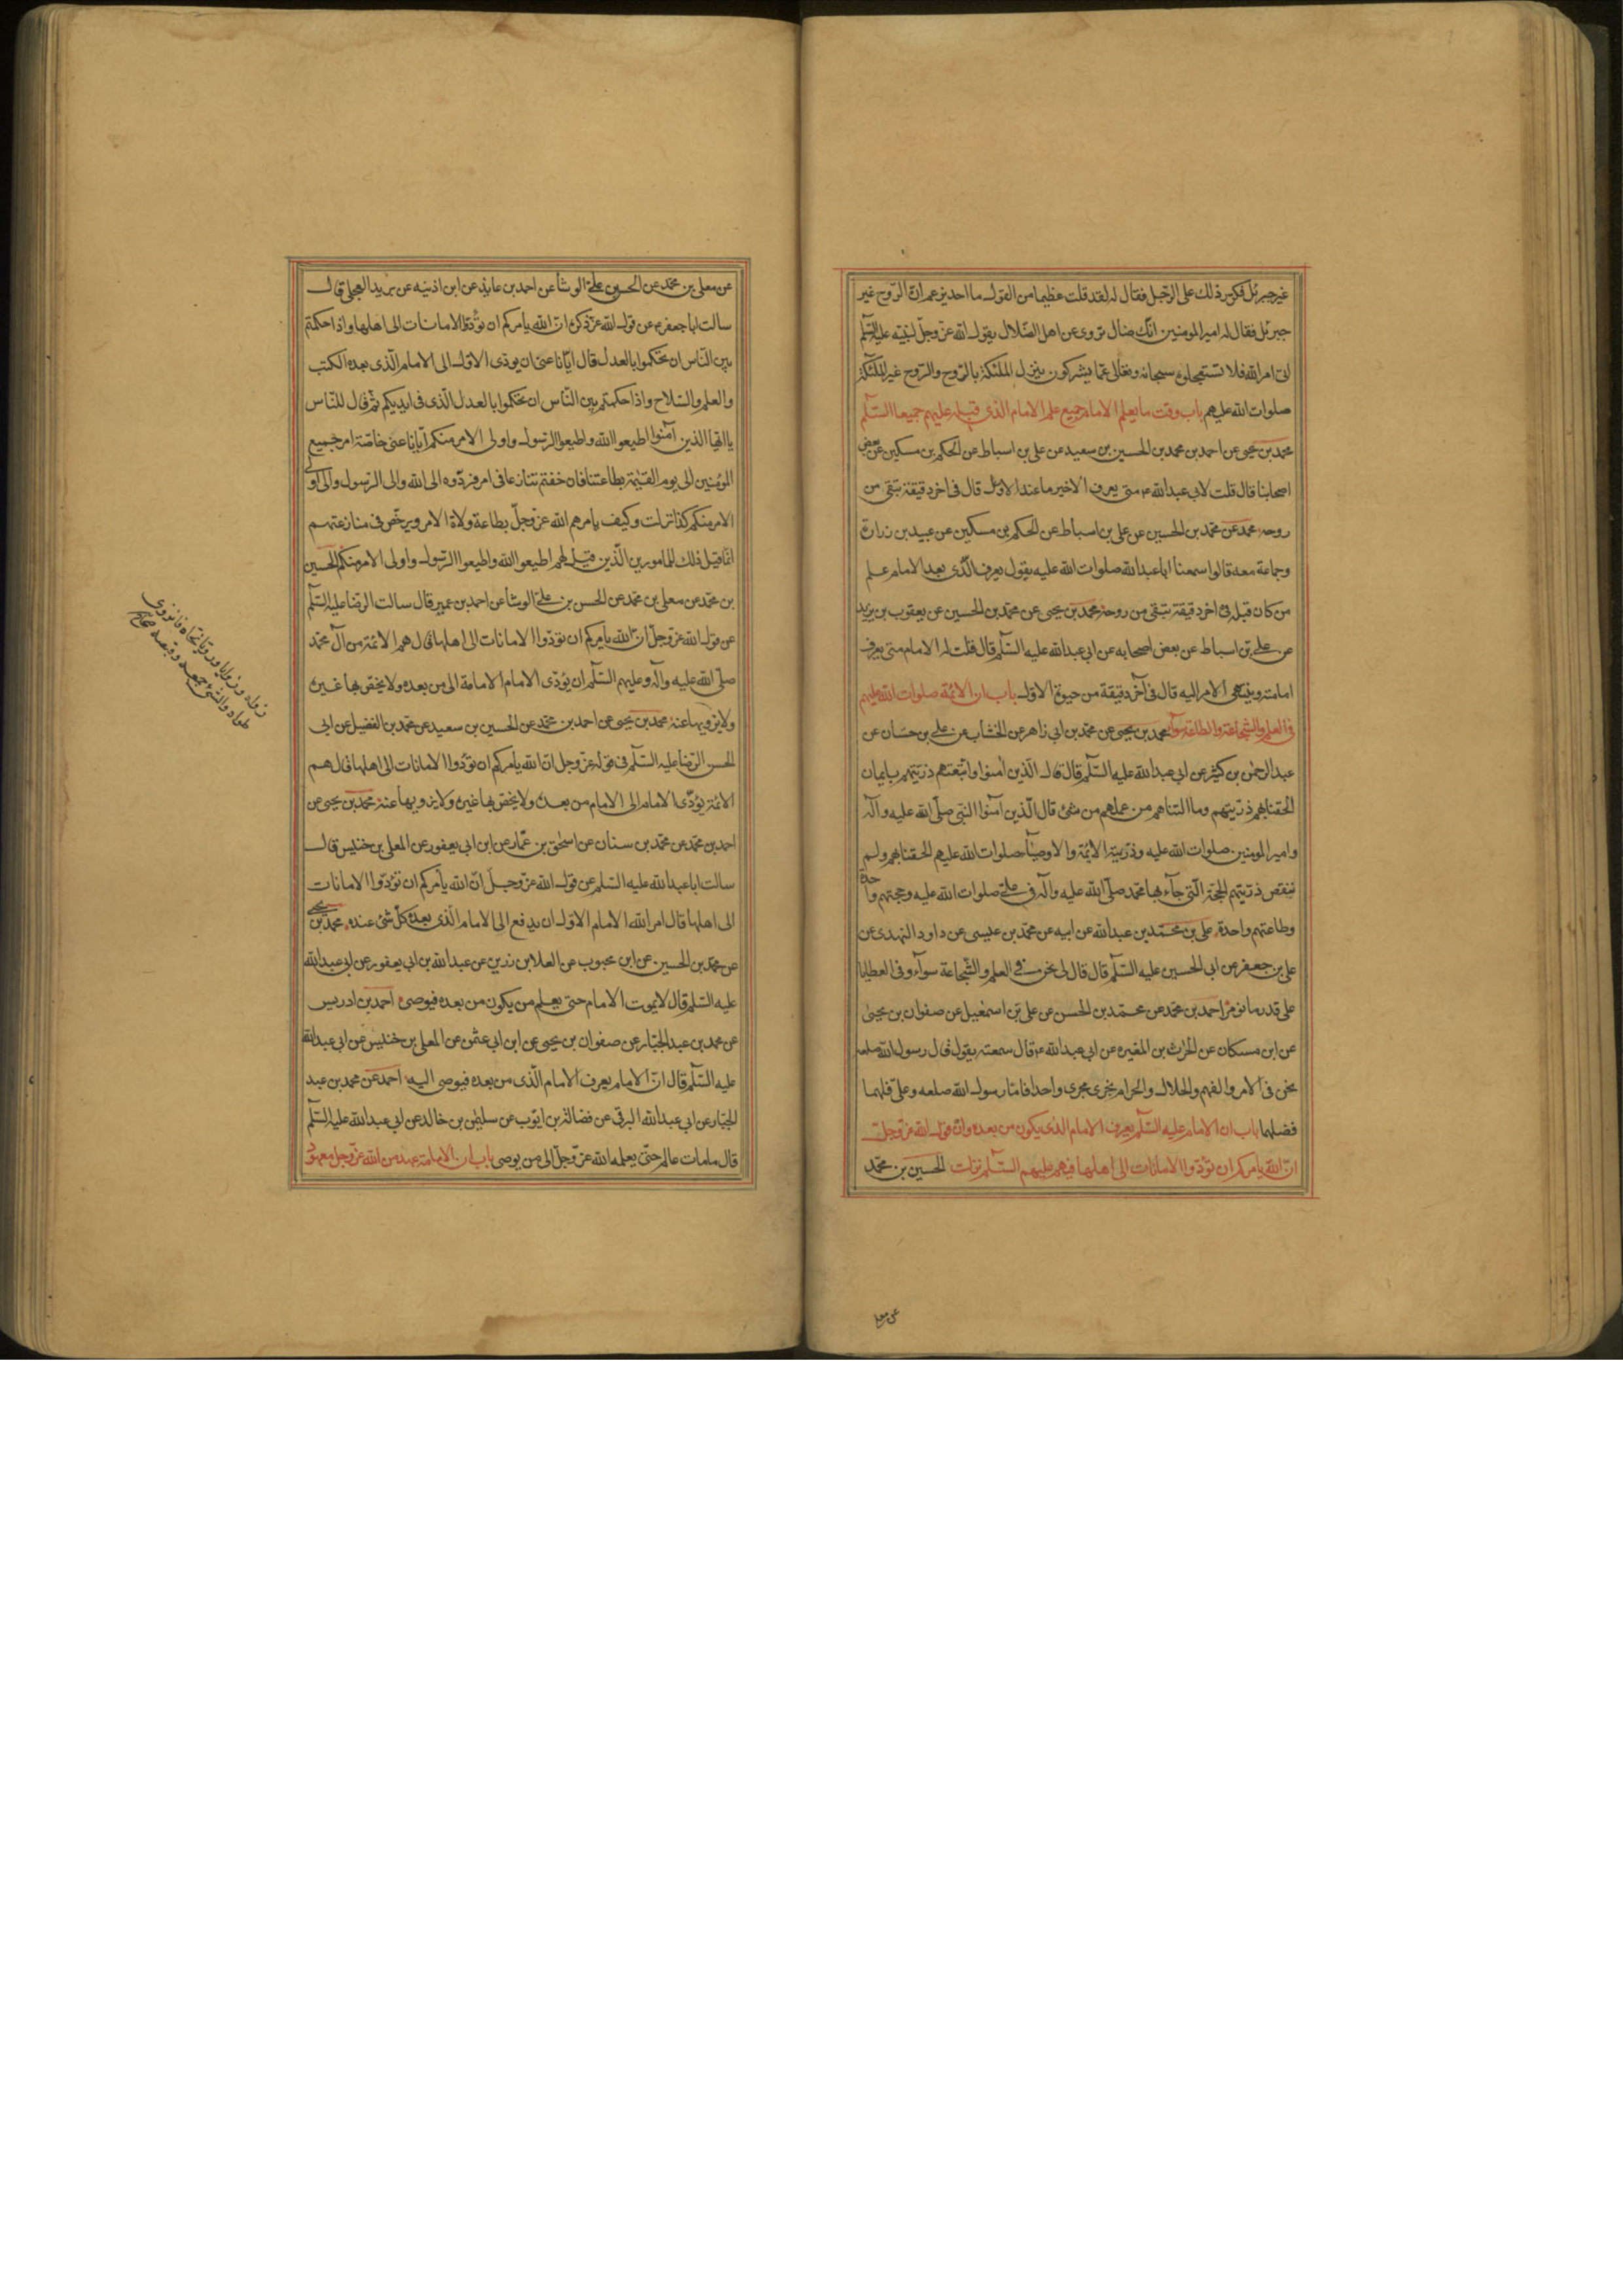 غير جبرئل فكرر ذلك على الرجل فقال له لقد قلت عظيما من القول ما احد يزعم ان الروح غير
جبرئل فقال له امير المومنين انك ضال تروى عن اهل الضلال يقول الله عز وجل لنبيه عليه السلم
اتى امر الله فلا تستعجلوه سبحانه وتعالى عما يشركون ينزل الملئكة بالروح والروح غير الملئكة
صلوات الله عليهم باب وقت ما يعلم الامام جميع علم الامام الذى قبله عليهم جميعا السلم
محمد بن يحيى عن احمد بن محمد بن الحسين بن سعيد عن على بن اسباط عن الحكم بن مسكين عن بعض
اصحابنا قال قلت لابى عبد الله ع متى يعرف الاخير ما عند الاول قال فى اخر دقيقة تبقى من
روحه محمد عن محمد بن الحسين عن على بن اسباط عن الحكم بن مسكين عن عبيد بن زرارة
وجماعة معه قالوا سمعنا ابا عبد الله صلوات الله عليه يقول يعرف الذى بعد الامام علم
من كان قبله فى اخر دقيقة تبقى من روحه محمد بن يحيى عن محمد بن الحسين عن يعقوب بن يزيد
عن على بن اسباط عن بعض اصحابه عن ابى عبد الله عليه السلم قال قلت له الامام متى يعرف
امامته وينتهى الامر اليه قال فى آخر دقيقة من حيوة الاول باب ان الائمة صلوات الله عليهم
فى العلم والشجاعة والطاعة سواء محمد بن يحيى عن محمد بن ابى زاهر عن الخشاب عن على بن حسان عن
عبد الرحمن بن كثير عن ابى عبد الله عليه السلم قال قال الذين امنوا واتبعتهم ذريتهم بايمان
الحقنا بهم ذريتهم وما التناهم من عملهم من شئ قال الذين آمنوا النبى صلى الله عليه وآله
وامير المومنين صلوات الله عليه وذريته الائمة والاوصياء صلوات الله عليهم الحقنا بهم ولم
ننقص ذريتهم الحجة التى جآء بها محمد صلى الله عليه وآله فى على صلوات الله عليه وحجتهم واحدة
وطاعتهم واحدة على بن محمد بن عبد الله عن ابيه عن محمد بن عيسى عن داود النهدى عن
على بن جعفر عن ابى الحسين عليه السلم قال قال لى نحن فى العلم والشجاعة سوآء وفى العطايا
على قدر ما نومر احمد بن محمد عن محمد بن الحسن عن على بن اسمعيل عن صفوان بن يحيى
عن ابن مسكان عن الحرث بن المغيره عن ابى عبد الله ع قال سمعته يقول قال رسول الله صلعم
نحن فى الامر والفهم والحلال والحرام نجرى مجرى واحدا فاما رسول الله صلعم وعلى فلهما
فضلهما باب ان الامام عليه السلم يعرف الامام الذى يكون من بعده وان قول الله عز وجل
ان الله يامركم ان تؤدوا الامانات الى اهلها فيهم عليهم السلم نزلت الحسين بن محمد
عن معلى
عن معلى بن محمد عن الحسن بن على الوشا عن احمد بن عايذ عن ابن اذينه عن بريد العجلى قال
سالت ابا جعفر ع عن قول الله عز ذكره ان الله يأمركم ان تؤدوا الامانات الى اهلها واذا حكمتم
بين الناس ان تحكموا بالعدل قال ايانا عنى ان يودى الاول الى الامام الذى بعده الكتب
والعلم والسلاح واذا حكمتم بين الناس ان تحكموا بالعدل الذى فى ايديكم ثم قال للناس
يا ايها الذين آمنوا اطيعوا الله واطيعوا الرسول واولى الامر منكم ايانا عنى خاصة امر جميع
المؤمنين الى يوم القيمة بطاعتنا فان خفتم تنازعا فى امر فردوه الى الله والى الرسول والى اولى
الامر منكم كذا نزلت وكيف يامرهم الله عز وجل بطاعة ولاة الامر ويرخص فى منازعتهم
انما قيل ذلك للمامورين الذين قيل لهم اطيعوا الله واطيعوا الرسول واولى الامر منكم الحسين
بن محمد عن معلى بن محمد عن الحسن بن على الوشا عن احمد بن عمير قال سالت الرضا عليه السلم
عن قول الله عز وجل ان الله يأمركم ان تؤدوا الامانات الى اهلها قال هم الائمة من آل محمد
صلى الله عليه وآله وعليهم السلم ان يؤدى الامام الامامة الى من بعده ولا يخص بها غيره
ولا يزويها عنه محمد بن يحيى عن احمد بن محمد عن الحسين بن سعيد عن محمد بن الفضيل عن ابى
الحسن الرضا عليه السلم فى قوله عز وجل ان الله يأمركم ان تؤدوا الامانات الى اهلها قال هم
الائمة يؤدى الامام الى الامام من بعده ولا يخص بها غيره ولا يزويها عنه محمد بن يحيى عن
احمد بن محمد عن محمد بن سنان عن اسحق بن عمار عن ابن ابى يعفور عن المعلى بن خنيس قال
سالت ابا عبد الله عليه السلم عن قول الله عز وجل ان الله يأمركم ان تؤدوا الامانات
الى اهلها قال امر الله الامام الاول ان يدفع الى الامام الذى بعده كل شئ عنده محمد بن يحيى
عن محمد بن الحسين عن ابن محبوب عن العلا بن رزين عن عبد الله بن ابى يعفور عن ابى عبد الله
عليه السلم قال لا يموت الامام حتى يعلم من يكون من بعده فيوصى احمد بن ادريس
عن محمد بن عبد الجبار عن صفوان بن يحيى عن ابن ابى عثمن عن المعلى بن خنيس عن ابى عبد الله
عليه السلم قال ان الامام يعرف الامام الذى من بعده فيوصى اليه احمد عن محمد بن عبد
الجبار عن ابى عبد الله البرقى عن فضالة بن ايوب عن سليمن بن خالد عن ابى عبد الله عليه السلم
قال ما مات عالم حتى يعلمه الله عز وجل الى من يوصى باب ان الامامة عهد من الله عز وجل معهود
زواه زويا وزيا نحاه فانزوى
والشئ جمعه وقبضه